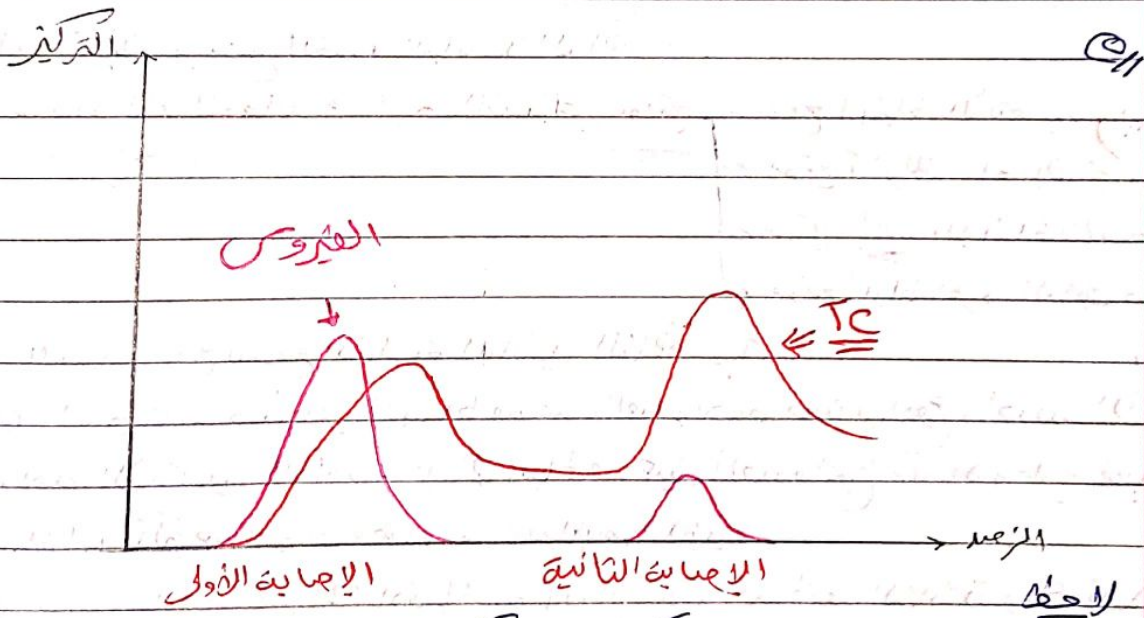 التركيز
الفيروس
TC
الزمن
الإصابة الأولى
الإصابة الثانية
لاحظ